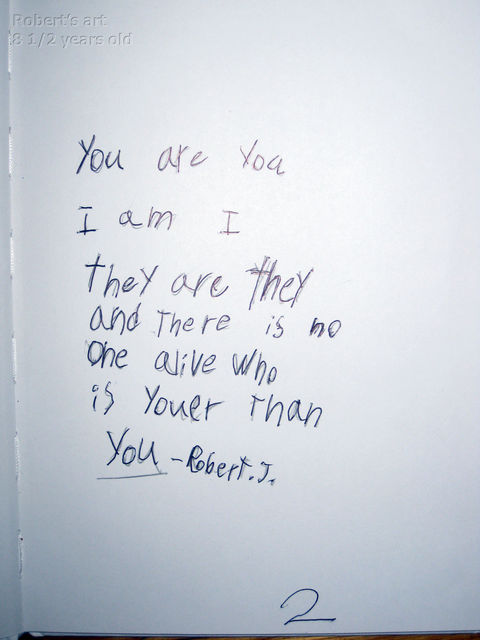 Robert's art
8 1/2 years old
You are You
I am I
they are they
and There is no
One alive who
is Youer Than
You -Robert.J.
2